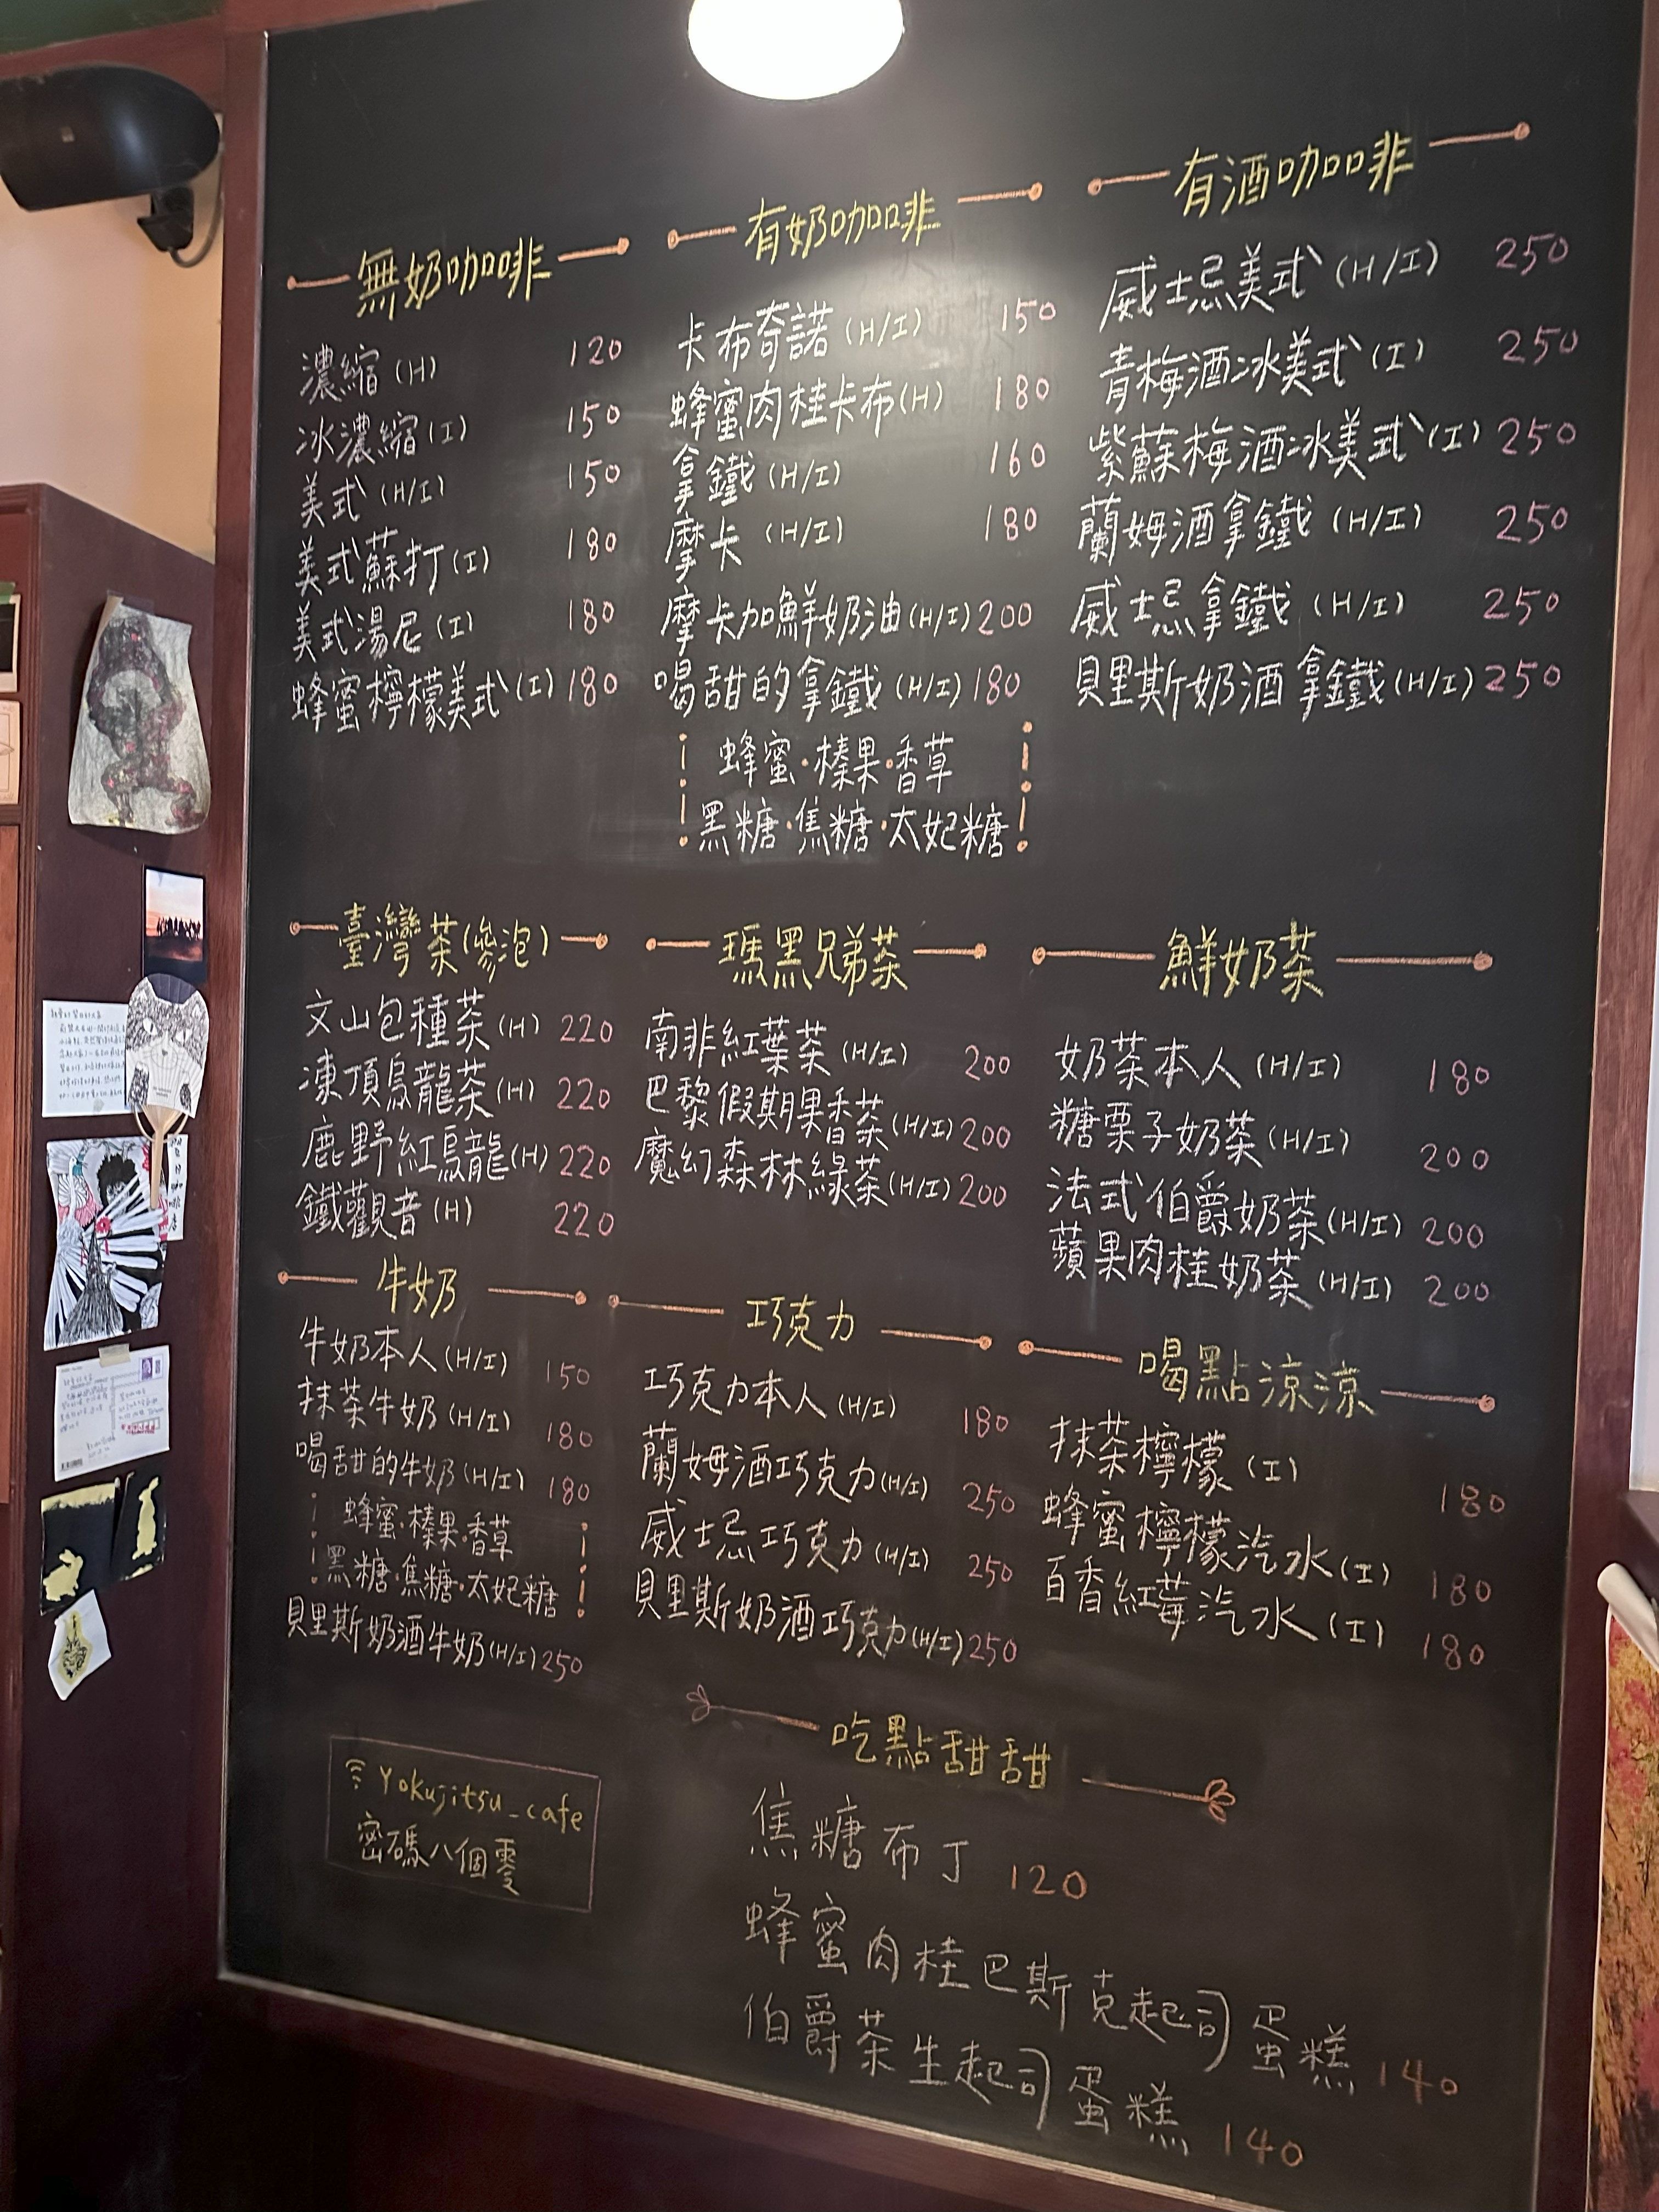 無奶咖啡
濃縮(H) 120
冰濃縮(I) 150
美式(H/I) 150
美式蘇打(I) 180
美式湯尼(I) 180
蜂蜜檸檬美式(I) 180
有奶咖啡
卡布奇諾(H/I) 150
蜂蜜肉桂卡布(H) 180
拿鐵(H/I) 160
摩卡(H/I) 180
摩卡加鮮奶油(H/I) 200
喝甜的拿鐵(H/I) 180
蜂蜜·榛果·香草
黑糖·焦糖·太妃糖
有酒咖啡
威士忌美式(H/I) 250
青梅酒冰美式(I) 250
紫蘇梅酒冰美式(I) 250
蘭姆酒拿鐵(H/I) 250
威士忌拿鐵(H/I) 250
貝里斯奶酒拿鐵(H/I) 250
臺灣茶(參泡)
文山包種茶(H) 220
凍頂烏龍茶(H) 220
鹿野紅烏龍(H) 220
鐵觀音(H) 220
瑪黑兄弟茶
南非紅葉茶(H/I) 200
巴黎假期果香茶(H/I) 200
魔幻森林綠茶(H/I) 200
鮮奶茶
奶茶本人(H/I) 180
糖栗子奶茶(H/I) 200
法式伯爵奶茶(H/I) 200
蘋果肉桂奶茶(H/I) 200
牛奶
牛奶本人(H/I) 150
抹茶牛奶(H/I) 180
喝甜的牛奶(H/I) 180
蜂蜜·榛果·香草
黑糖·焦糖·太妃糖
貝里斯奶酒牛奶(H/I) 250
巧克力
巧克力本人(H/I) 180
蘭姆酒巧克力(H/I) 250
威士忌巧克力(H/I) 250
貝里斯奶酒巧克力(H/I) 250
喝點涼涼
抹茶檸檬(I) 180
蜂蜜檸檬汽水(I) 180
百香紅莓汽水(I) 180
Yokujitsu_cafe
密碼八個零
吃點甜甜
焦糖布丁 120
蜂蜜肉桂巴斯克起司蛋糕 140
伯爵茶生起司蛋糕 140